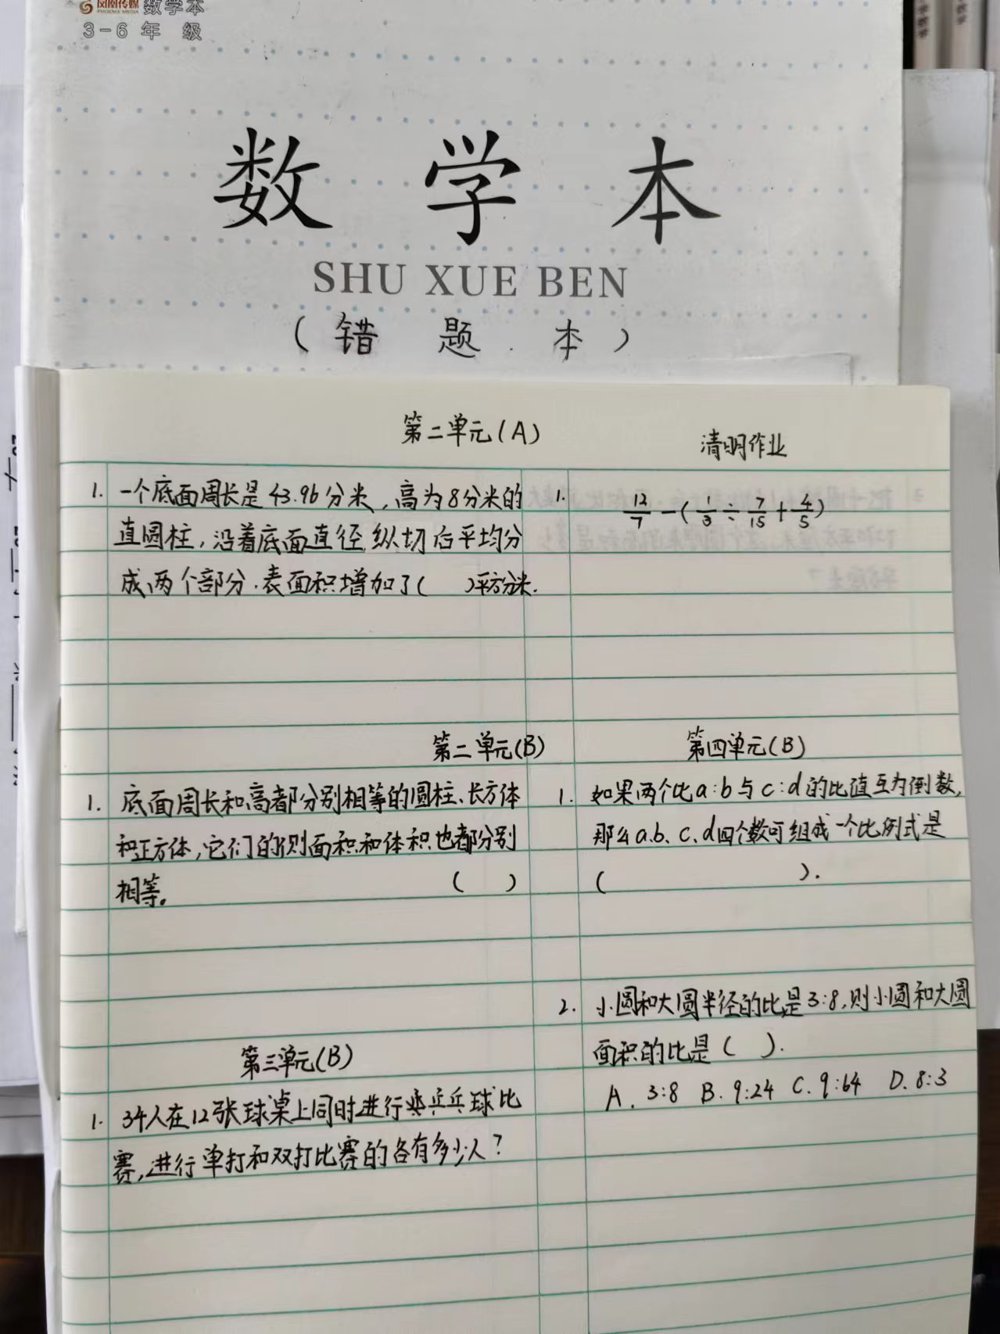 凤凰传媒 数学本
PHOENIX MEDIA
3-6年 级
数 学 本
SHU XUE BEN
(错 题 本)
第二单元(A)
1. 一个底面周长是43.96分米,高为8分米的
直圆柱,沿着底面直径纵切后平均分
成两个部分.表面积增加了( )平方分米.
第二单元(B)
1. 底面周长和高都分别相等的圆柱、长方体
和正方体,它们的侧面积和体积也都分别
相等。 ( )
第三单元(B)
1. 34人在12张球桌上同时进行乒乓球比
赛,进行单打和双打比赛的各有多少人?
清明作业
1. 12/7-(1/3÷7/15+4/5)
第四单元(B)
1. 如果两个比a:b与c:d的比值互为倒数,
那么a.b、c、d四个数可组成一个比例式是
( ).
2. 小圆和大圆半径的比是3:8,则小圆和大圆
面积的比是( ).
A. 3:8 B. 9:24 C. 9:64 D. 8:3